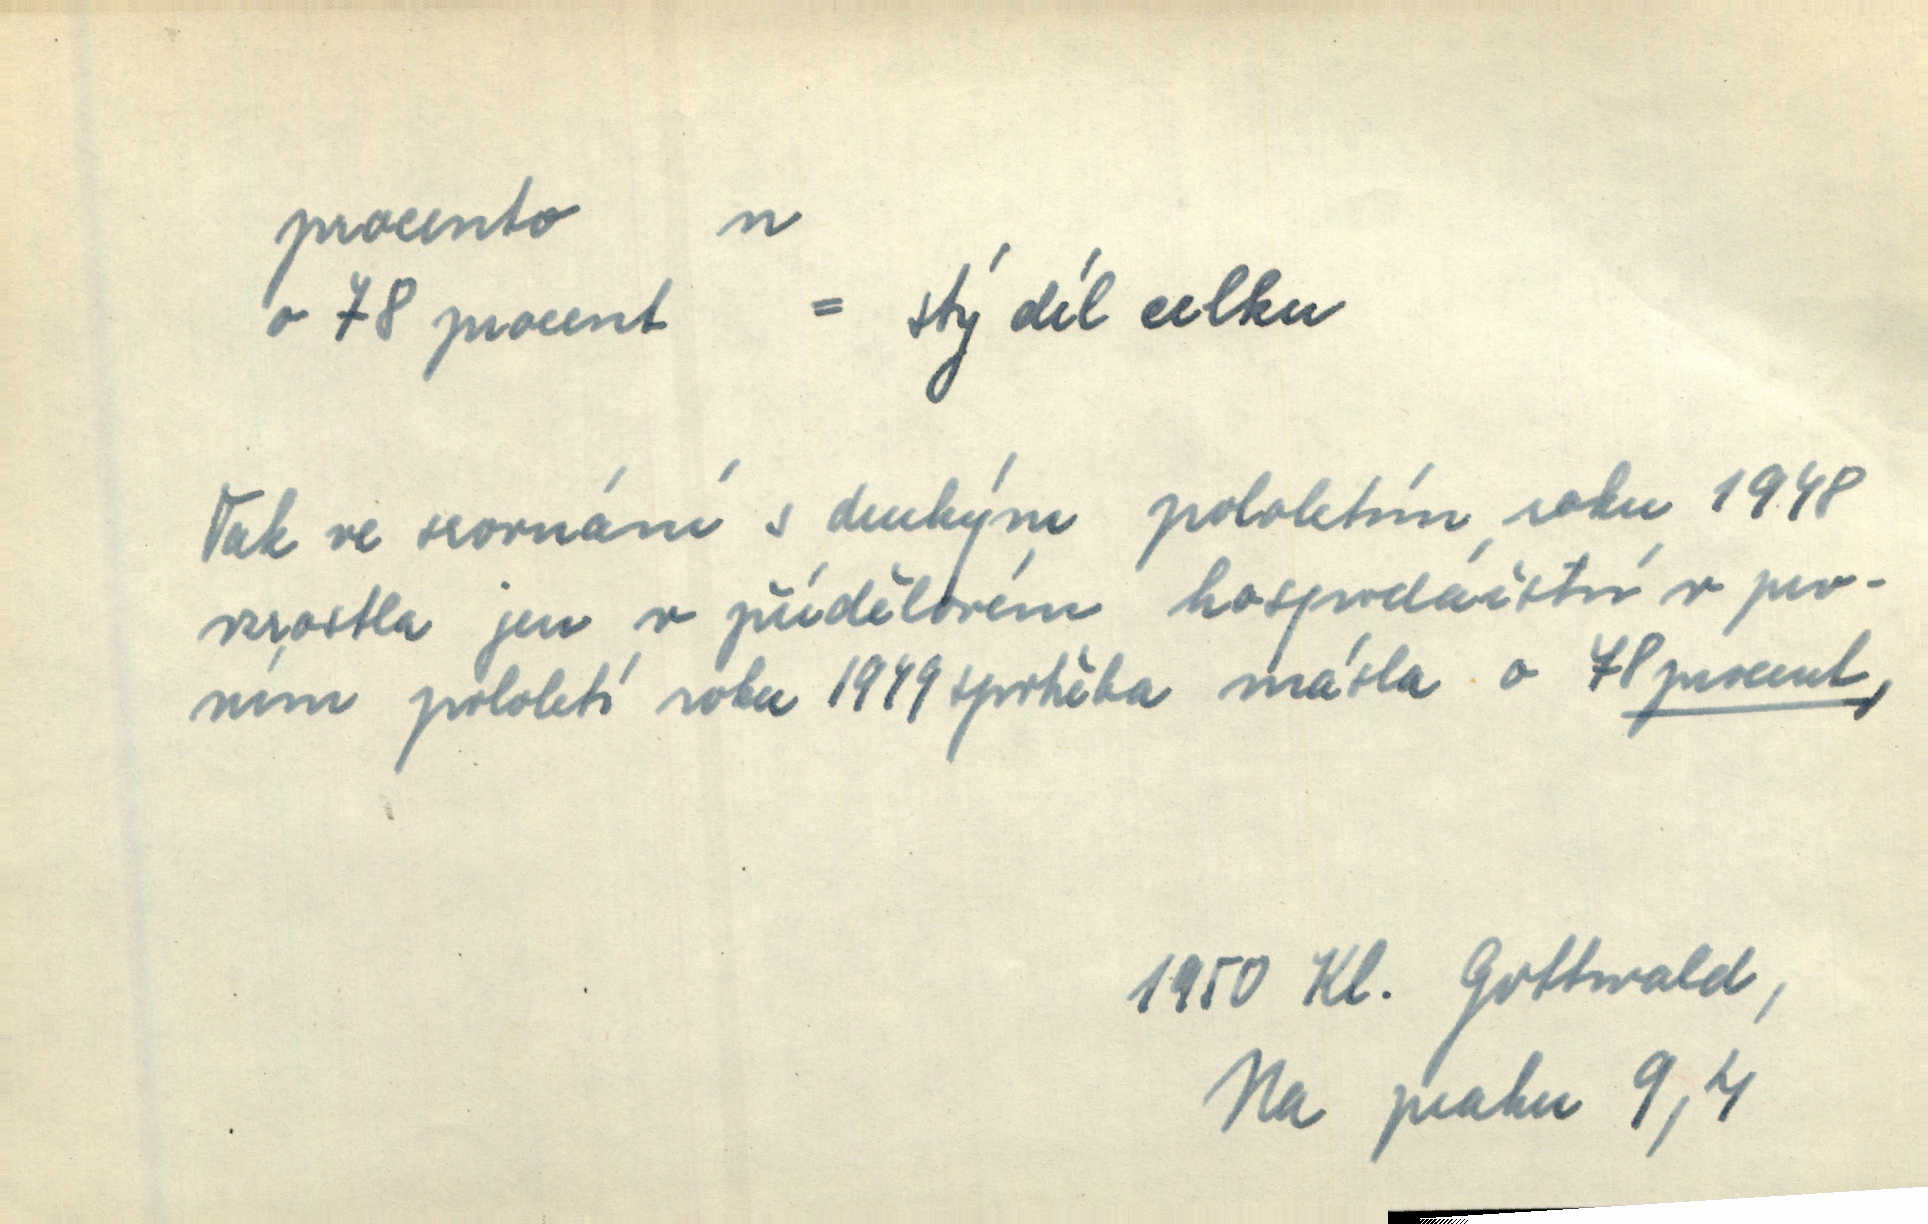 procento n
o 78 procent = stý díl celku
Tak ve srovnání s druhým pololetím roku 1948
vzrostla jen v přídělovém hospodářství v prv-
ním pololetí roku 1949 spotřeba másla o 78 procent,
1950 Kl. Gottwald,
Na prahu 9,4